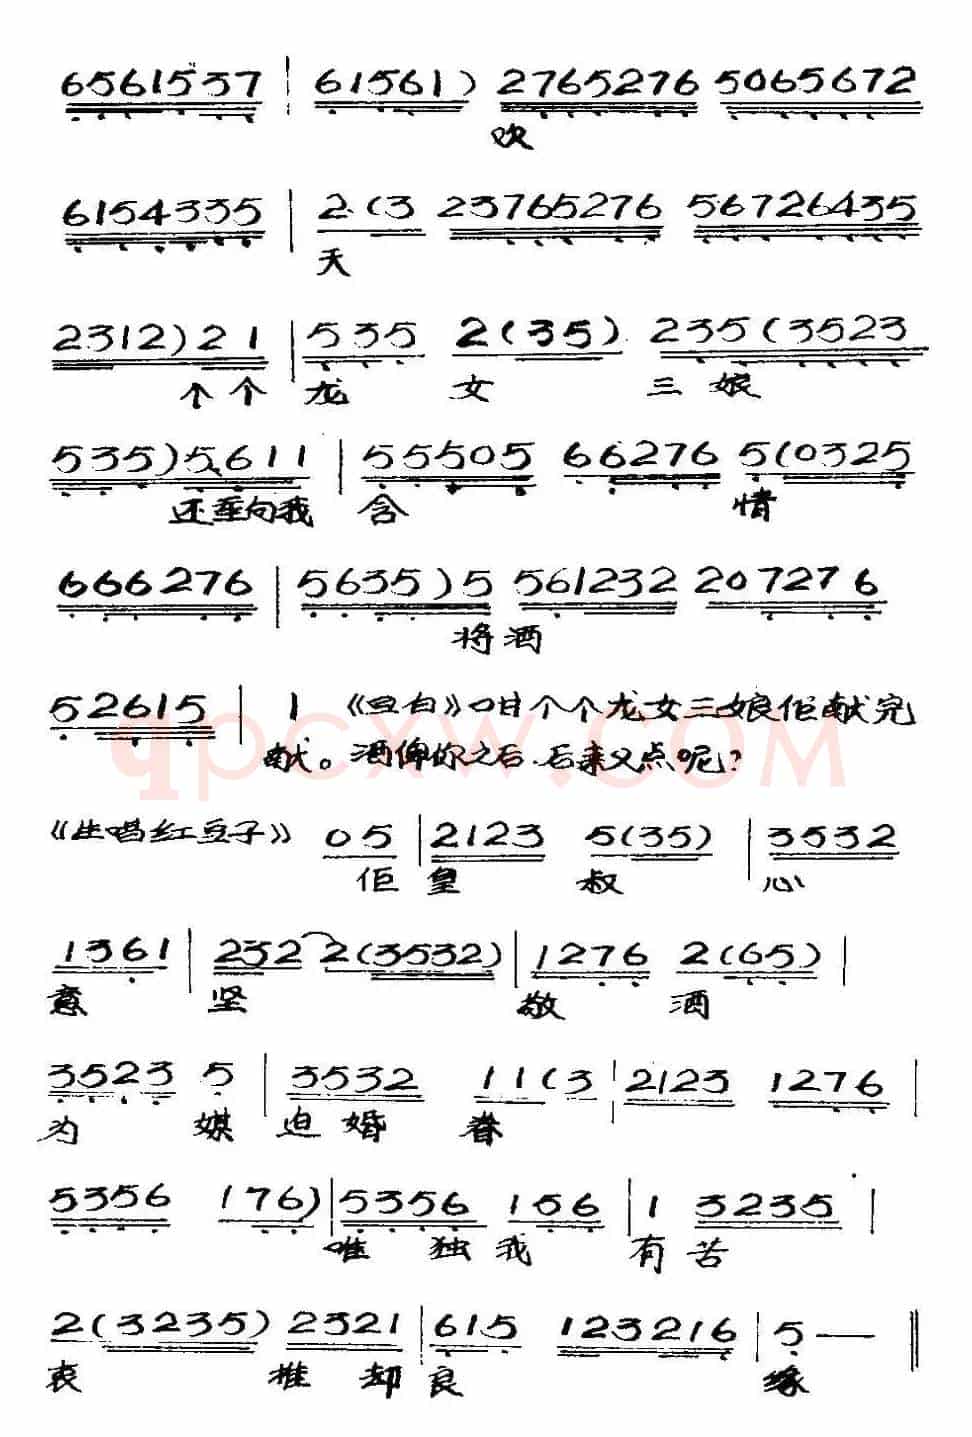 6561537 | 61561) 2765276 5065672
欢
6154335 | 2·(3 23765276 56726435
天
2312) 21 | 535 2(35) 235(3523
个个 龙 女 三娘
535) 5611 | 55505 66276 5(0325
还垂向我 含 情
666276 | 5635) 5 561232 207276
将酒
52615 | 1 《旦白》咁个个龙女三娘佢献完
献。酒俾你之后.后来又点呢?
qpcxw.com
《生唱红豆子》 05 | 2123 5(35) | 3532
佢皇 叔 心
1361 | 232 2(3532) | 1276 2(65) |
意 坚 敬 酒
3523 5 | 3532 11(3 | 2123 1276 |
为 媒 迫婚 眷
5356 176) | 5356 156 | 1 3235 |
唯 独我 有苦
2(3235) 2321 | 615 123216 | 5 — ‖
衷 推却良 缘